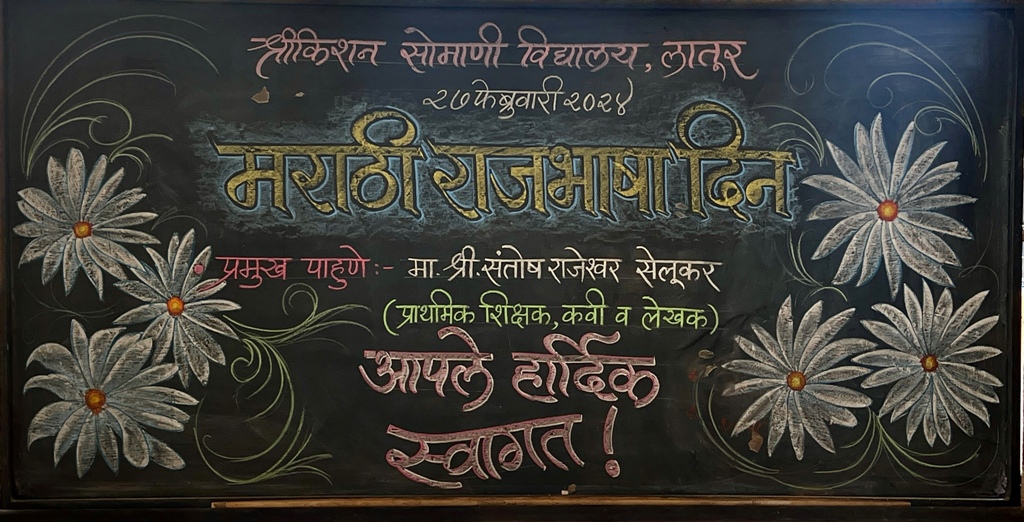 श्रीकिशन सोमाणी विद्यालय, लातूर
२७ फेब्रुवारी २०२४
मराठी राजभाषा दिन
• प्रमुख पाहुणे :- मा. श्री. संतोष राजेश्वर सेलूकर
(प्राथमिक शिक्षक, कवी व लेखक)
आपले हार्दिक
स्वागत !